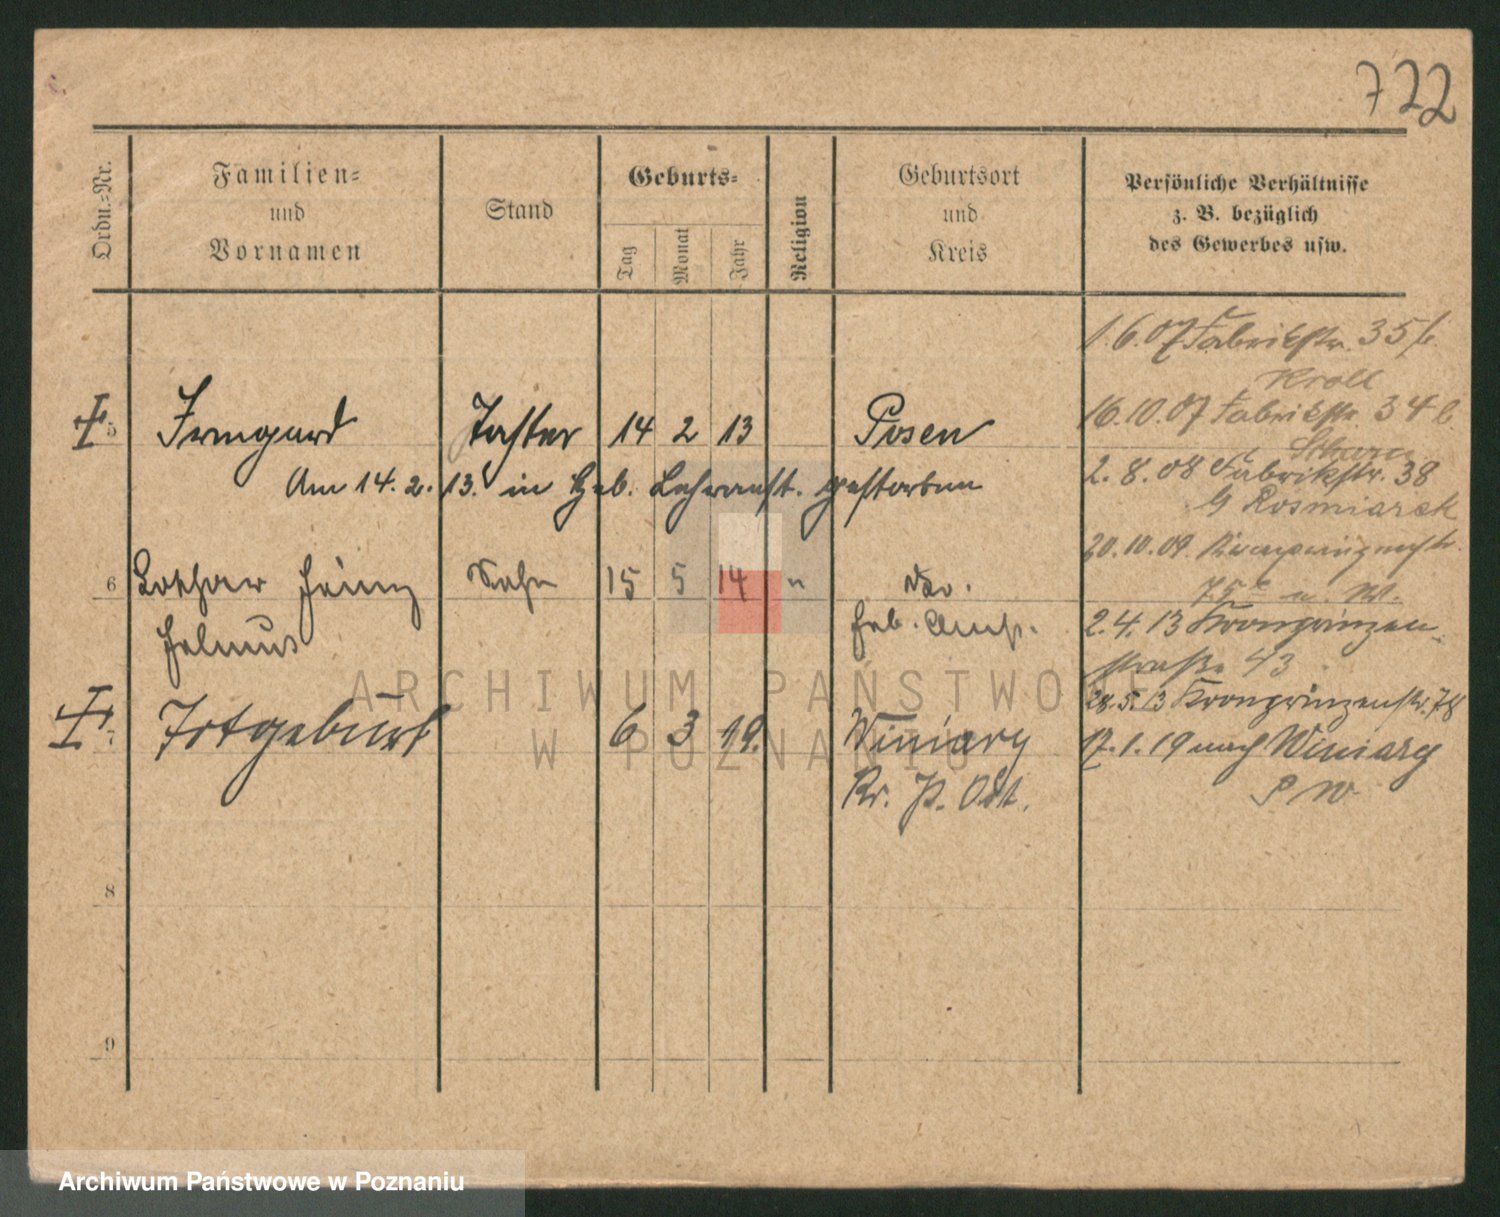 722
Ordn.-Nr.
Familien-
und
Vornamen
Stand
Geburts-
Tag
Monat
Jahr
Religion
Geburtsort
und
Kreis
Persönliche Verhältnisse
z. B. bezüglich
des Gewerbes usw.
1.6.07 Fabrikstr. 35
Kroll
16.10.07 Fabrikstr. 34
5 Irmgard Tochter 14 2 13 Posen
Am 14. 2. 13. in Heb. Lehranst. gestorben
2. 8. 08 Fabrikstr. 38
20.10.09.
6 Lothar Heinz Sohn 15 5 14 " do.
Helmut Heb. Anst.
2.4.13 Kronprinzen-
straße 43
28.5.13 Kronprinzenstr. 78
7 Totgeburt 6 3 19. Winiary
Kr. P. Ost.
17.1.19 nach Winiary
8
9
ARCHIWUM PAŃSTWOWE
W POZNANIU
Archiwum Państwowe w Poznaniu